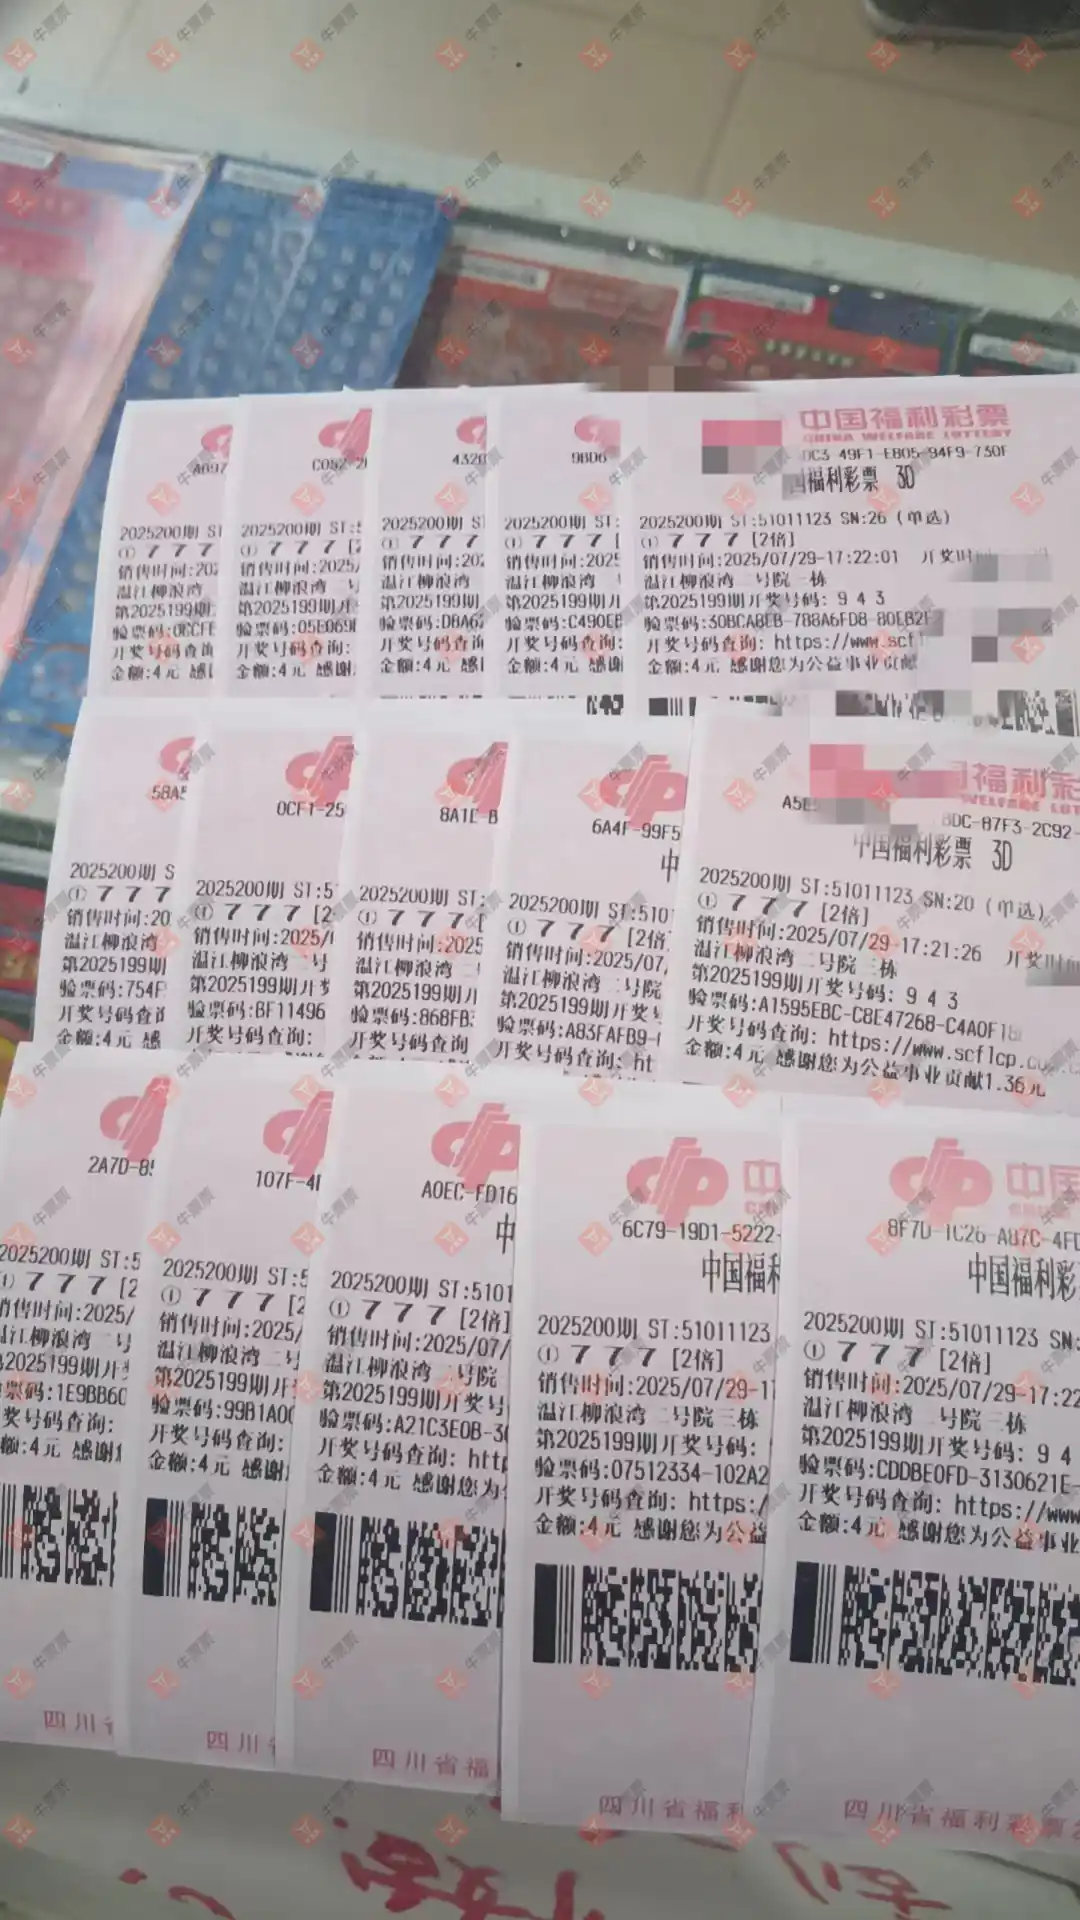 A697
2025200期 ST
① 7 7 7
销售时间:202
温江柳浪湾
第2025199期
验票码:0CCFE
开奖号码查询
金额:4元 感
C052-2
2025200期 ST:5
① 7 7 7 [2
销售时间:2025/
温江柳浪湾 二号
第2025199期开
验票码:05E069
开奖号码查询:
金额:4元 感谢
432
2025200期 S
① 7 7 7
销售时间:202
温江柳浪湾
第2025199期
验票码:DBA62
开奖号码查询
金额:4元 感
9BD6
2025200期 ST:
① 7 7 7 [
销售时间:2025
温江柳浪湾
第2025199期开
验票码:C490EB
开奖号码查询:
金额:4元 感谢
中国福利彩票
CHINA WELFARE LOTTERY
DC3-49F1-EB05-94F9-730F
国福利彩票 3D
2025200期 ST:51011123 SN:26 (单选)
① 7 7 7 [2倍]
销售时间:2025/07/29-17:22:01 开奖时
温江柳浪湾二号院三栋
第2025199期开奖号码: 9 4 3
验票码:30BCABEB-788A6FD8-80E82E
开奖号码查询: https://www.scf
金额:4元 感谢您为公益事业贡献
58A5
2025200期 S
① 7 7 7
销售时间:20
温江柳浪湾
第2025199期
验票码:754F
开奖号码查询
金额:4元 感
0CF1-25
2025200期 ST:5
① 7 7 7 [2
销售时间:2025/
温江柳浪湾二号
第2025199期开奖
验票码:BF11496
开奖号码查询:
8A1E-B
2025200期 ST:
① 7 7 7 [
销售时间:2025
温江柳浪湾二
第2025199期开
验票码:868FB
开奖号码查询:
6A4F-99F5
中
2025200期 ST:510
① 7 7 7 [2倍
销售时间:2025/07/
温江柳浪湾二号院
第2025199期开奖号
验票码:A83FAFB9-
开奖号码查询: ht
福利彩
WELFARE LOT
A5B
8DC-87F3-2C92-
中国福利彩票 3D
2025200期 ST:51011123 SN:20 (单选)
① 7 7 7 [2倍]
销售时间:2025/07/29-17:21:26 开奖时间
温江柳浪湾二号院三栋
第2025199期开奖号码: 9 4 3
验票码:A1595EBC-C8E47268-C4A0F1
开奖号码查询: https://www.scflcp.c
金额:4元 感谢您为公益事业贡献1.36元
2A7D-8
2025200期 ST:5
① 7 7 7 [2
销售时间:2025/
温江柳浪湾二号
2025199期开奖
票码:1E9BB60
奖号码查询:
额:4元 感谢
四川省
107F-4
2025200期 ST:5
① 7 7 7 [2
销售时间:2025/
温江柳浪湾二号
第2025199期开
验票码:99B1A0
开奖号码查询:
金额:4元 感谢
四川省
A0EC-FD16
中
2025200期 ST:5101
① 7 7 7 [2倍]
销售时间:2025/07/
温江柳浪湾二号院
第2025199期开奖号
验票码:A21C3E0B-3
开奖号码查询: http
金额:4元 感谢您为
四川省福
中
6C79-19D1-5222-
中国福利
2025200期 ST:51011123
① 7 7 7 [2倍]
销售时间:2025/07/29-17
温江柳浪湾二号院三栋
第2025199期开奖号码:
验票码:07512334-102A2
开奖号码查询: https:/
金额:4元 感谢您为公益
四川省福利
中国
8F7D-1C26-A87C-4FD
中国福利彩
2025200期 ST:51011123 SN:
① 7 7 7 [2倍]
销售时间:2025/07/29-17:22
温江柳浪湾二号院三栋
第2025199期开奖号码: 9 4
验票码:CDDBE0FD-3130621E-
开奖号码查询: https://www
金额:4元 感谢您为公益事业
四川省福利彩票
牛票票